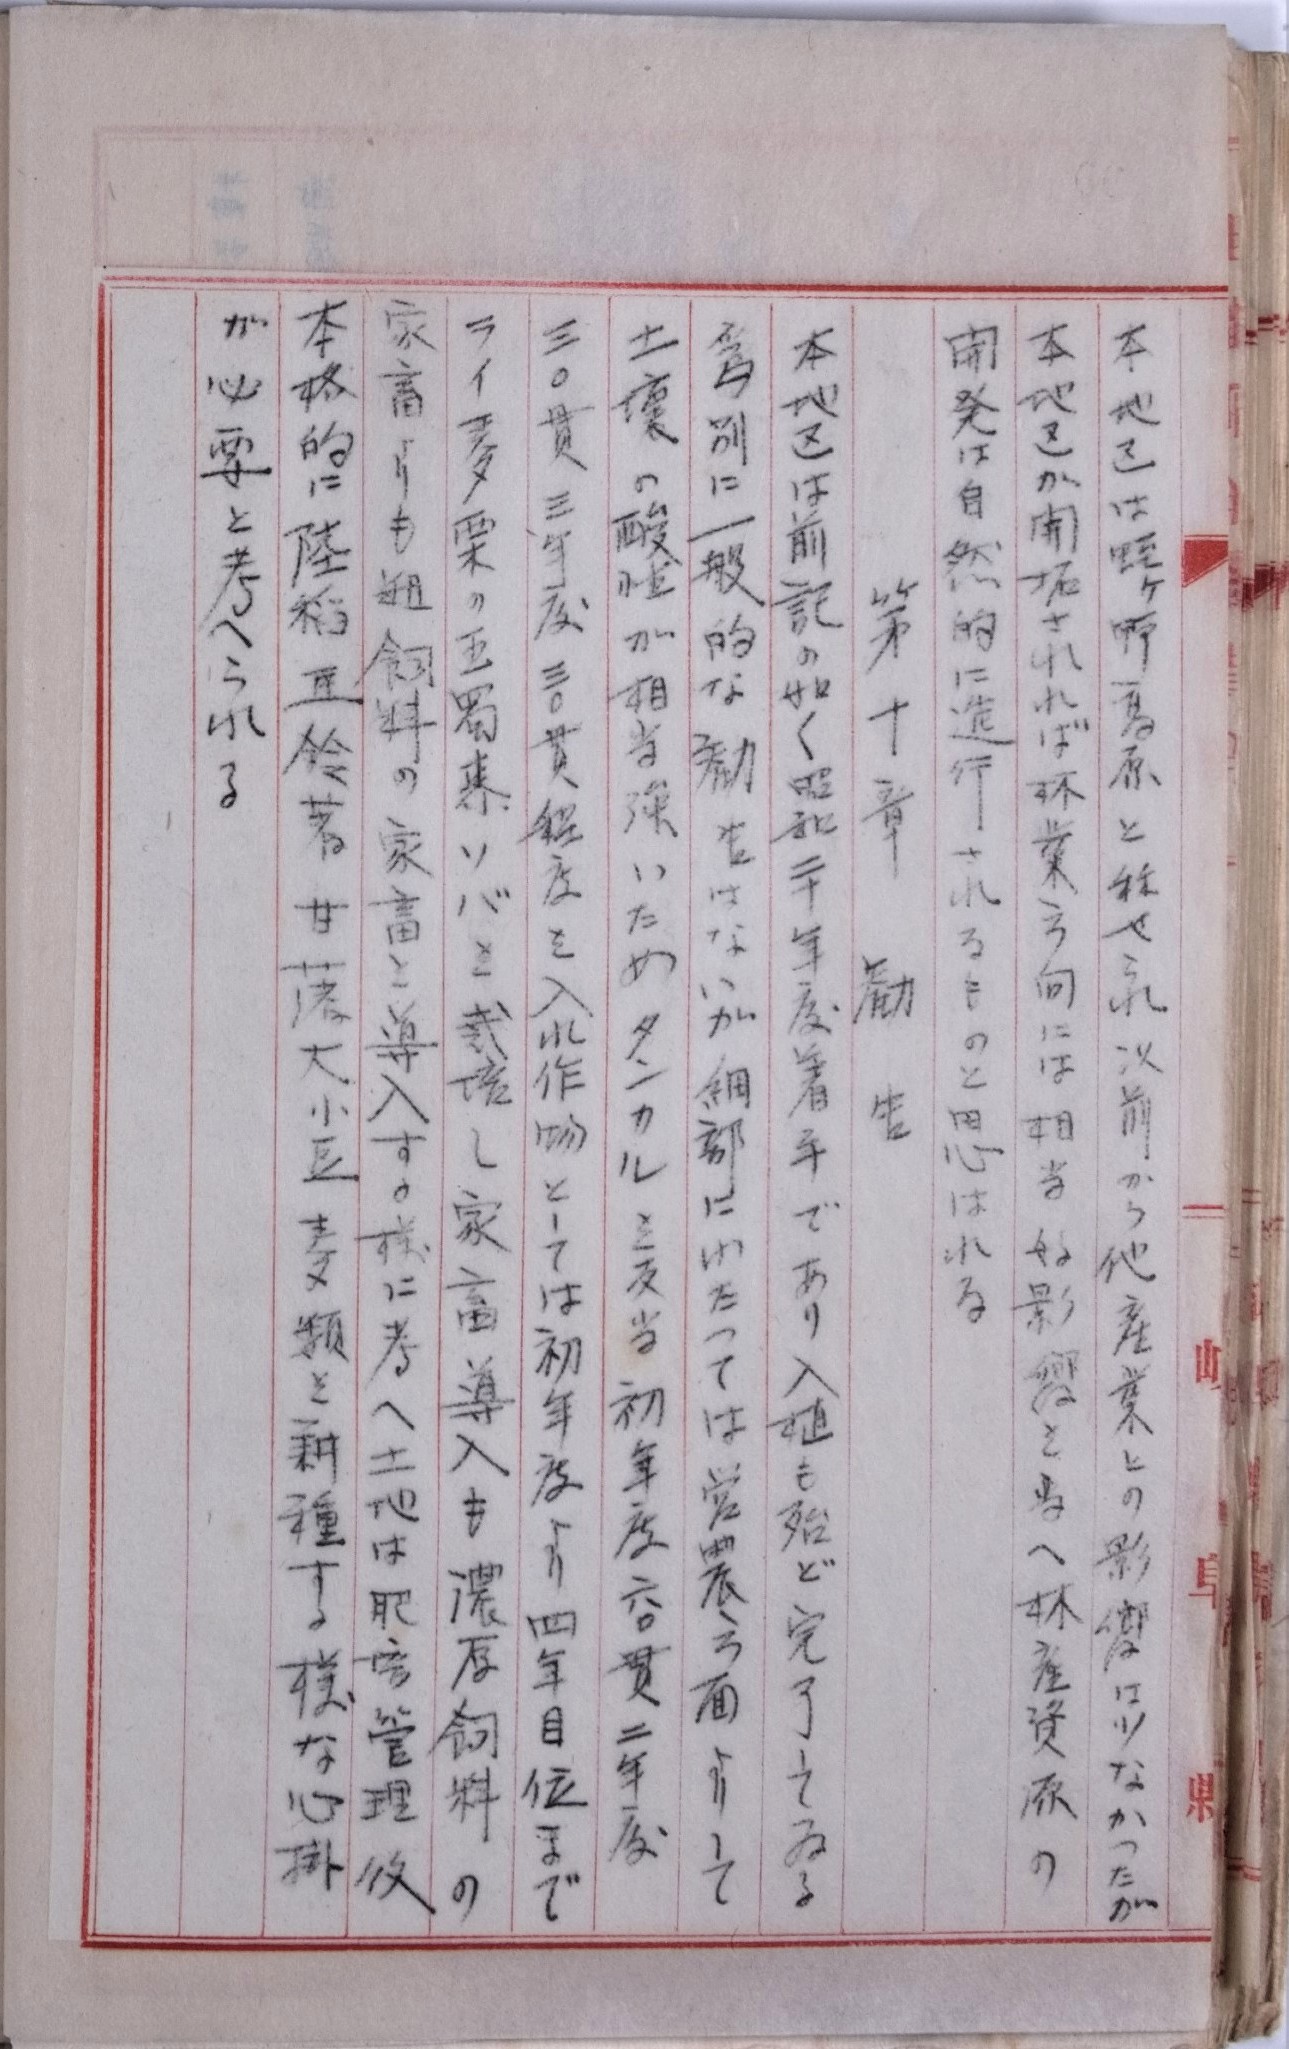 本地区は蛭ヶ野高原と称せられ以前から他産業との影響は少なかつたが
本地区が開拓されれば林業方向には相当好影響を与へ林産資原の
開発は自然的に進行されるものと思はれる
第十章 勧告
本地区は前記の如く昭和二十年度着手であり入植も殆ど完了してゐる
為別に一般的な勧告はないが細部にわたつては営農方面よりして
土壌の酸性が相当強いためタンカルを反当初年度六〇貫二年度
三〇貫三年度三〇貫程度を入れ作物としては初年度より四年目位まで
ライ麦粟の玉蜀黍ソバを栽培し家畜導入も濃厚飼料の
家畜よりも粗飼料の家畜を導入する様に考へ土地は肥培管理後
本格的に陸稲馬鈴薯甘藷大小豆麦類を耕種する様な心掛
が必要と考へられる
岐阜県